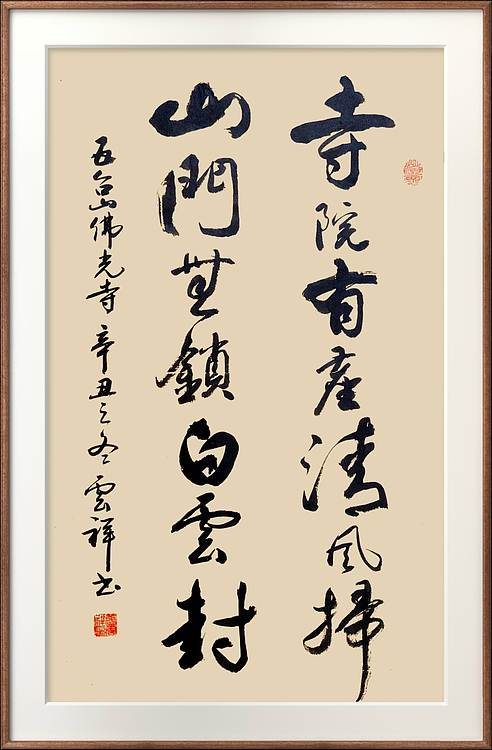 寺院有塵清风掃
山門無鎖白雲封
五台山佛光寺 辛丑之冬 雲祥书